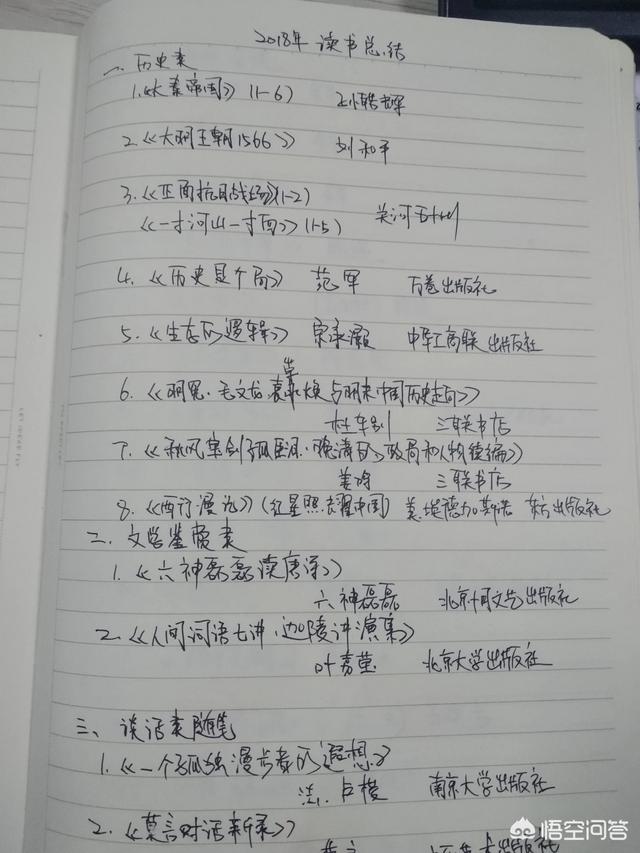 2018年 读书总结
一、历史类
1.《大秦帝国》(1-6) 孙皓晖
2.《大明王朝1566》 刘和平
3.《正面抗日战场》(1-2)
《一寸河山一寸血》(1-5) 关河五十州
4.《历史是个局》 范军 万卷出版社
5.《生存的逻辑》 宗承灏 中华工商联出版社
6.《明冤·毛文龙袁崇焕与明末中国历史走向》
杜车别 三联书店
7.《秋风宝剑孤臣泪·晚清的政局和人物续编》
姜鸣 三联书店
8.《西行漫记》(红星照耀中国) 美.埃德加斯诺 东方出版社
二、文学鉴赏类
1.《六神磊磊读唐诗》
六神磊磊 北京十月文艺出版社
2.《人间词话七讲·迦陵讲演集》
叶嘉莹 北京大学出版社
三、谈话类随笔
1.《一个孤独漫步者的遐想》
法.卢梭 南京大学出版社
2.《莫言对话新录》
莫言 出版社
悟空问答